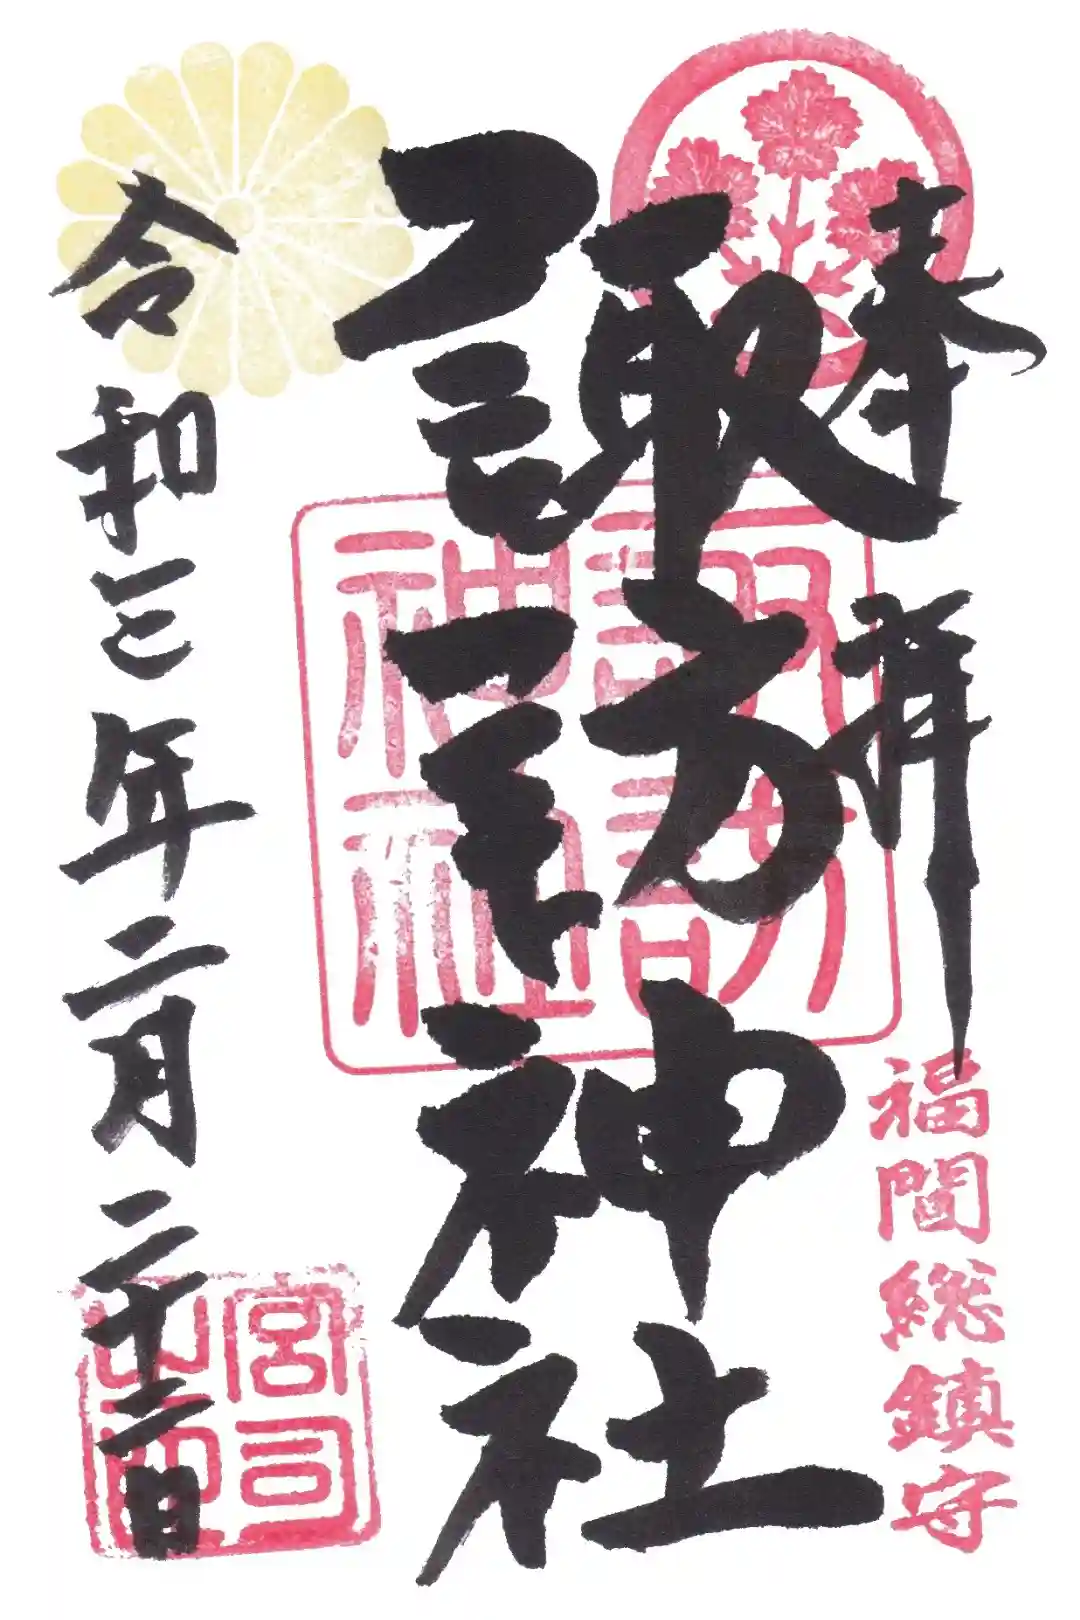 奉拝
福間総鎮守
諏訪神社
諏訪神社
令和三年二月二十三日
宮司之印